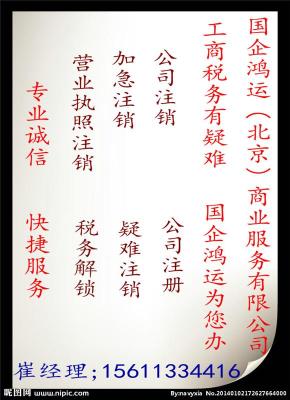 国企鸿运（北京）商业服务有限公司
工商税务有疑难 国企鸿运为您办
公司注销 公司注册
加急注销 疑难注销
营业执照注销 税务解锁
专业诚信 快捷服务
崔经理;15611334416
昵图网 www.nipic.com
By:navyxia No.20140102172627664000